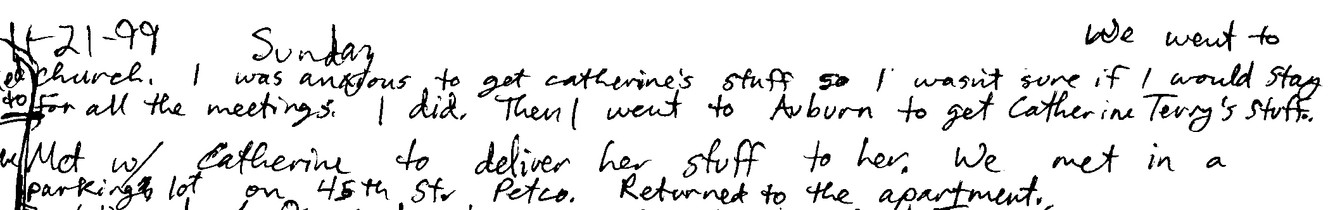 11-21-99 Sunday We went to
church. I was anxious to get catherine's stuff so I wasn't sure if I would stay
for all the meetings. I did. Then I went to Auburn to get Catherine Terry's stuff.
Met w/ Catherine to deliver her stuff to her. We met in a
parking lot on 45th St. Petco. Returned to the apartment.